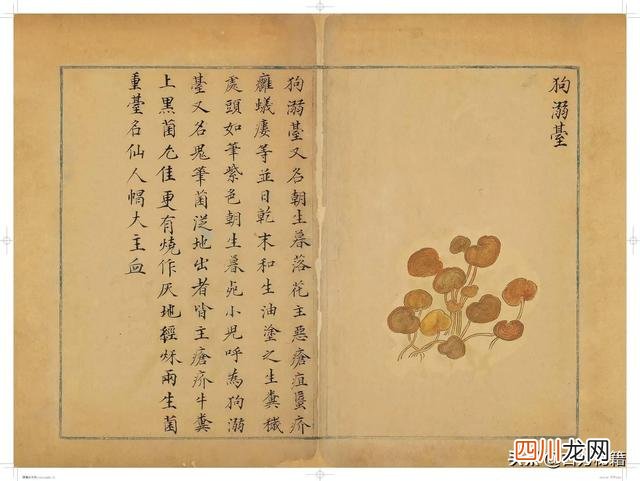 狗溺臺
狗溺臺又名朝生暮落花主惡瘡疽䘌疥
癰蟻瘻等並日乾末和生油塗之生糞穢
處頭如筆紫色朝生暮死小兒呼為狗溺
臺又名鬼筆菌從地出者皆主瘡疥牛糞
上黑菌尤佳更有燒作灰地經秋雨生菌
重臺名仙人帽大主血
四川龙网